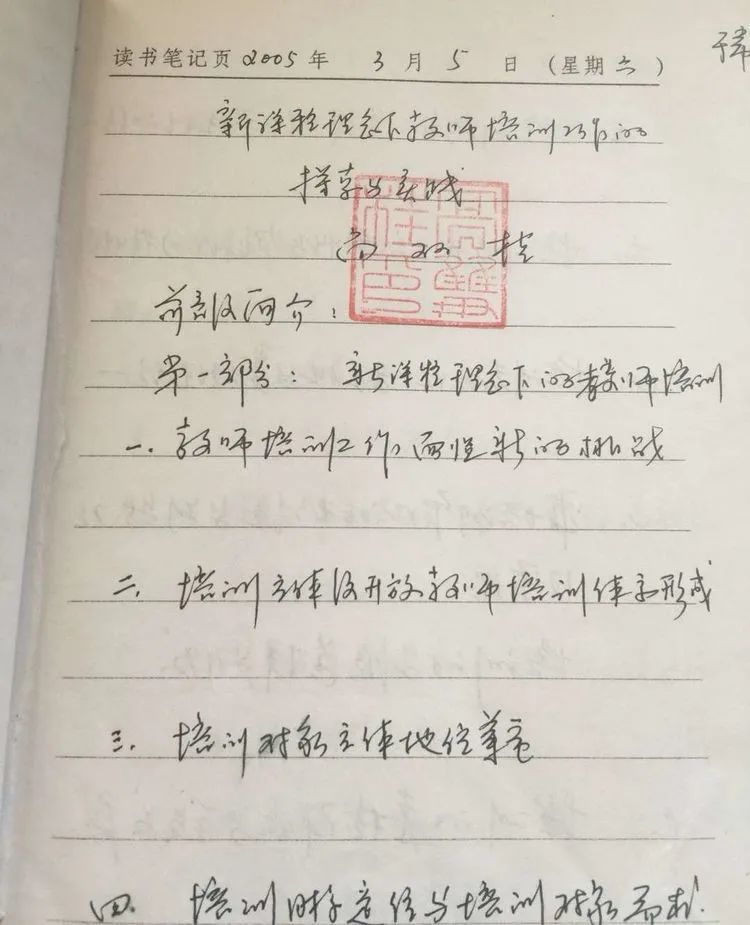 读书笔记页 2005年 3月 5日 (星期六)
新课程理念下教师培训工作的
探索与实践
尚双桂
前言及简介:
第一部分: 新课程理念下的教师培训
一、教师培训工作面临新的挑战
二、培训主体及开放教师培训体系形成
三、培训对象主体地位
四、培训目标定位与培训对象需求